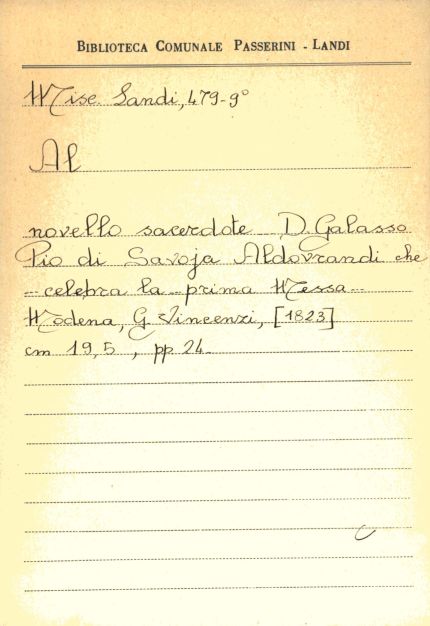 BIBLIOTECA COMUNALE PASSERINI - LANDI
Misc. Landi, 479-9°
Al
novello sacerdote D. Galasso
Pio di Savoja Aldovrandi che
celebra la prima Messa
Modena, G. Vincenzi, [1823]
cm 19,5, pp. 24.